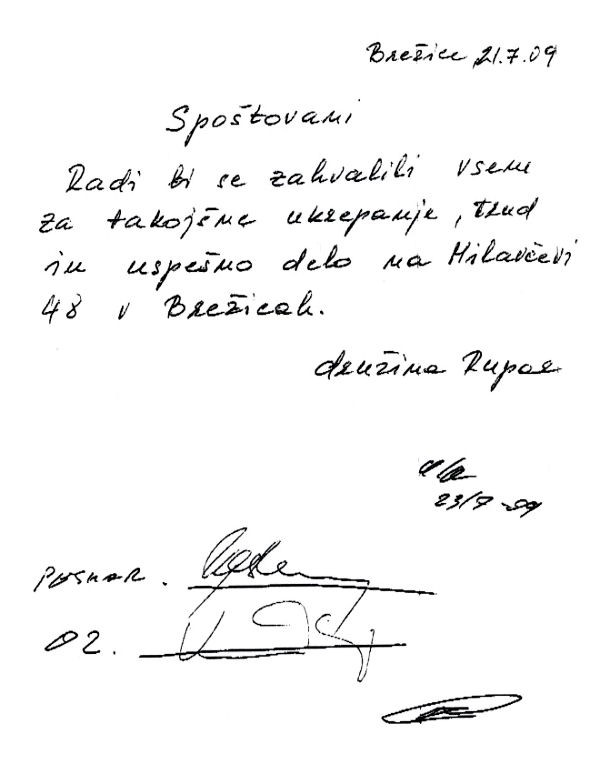 Brežice 21.7.09
Spoštovani
Radi bi se zahvalili vsem
za takojšne ukrepanje, trud
in uspešno delo na Milavčevi
48 v Brežicah.
družina Rupar
23/7-09
OZ.